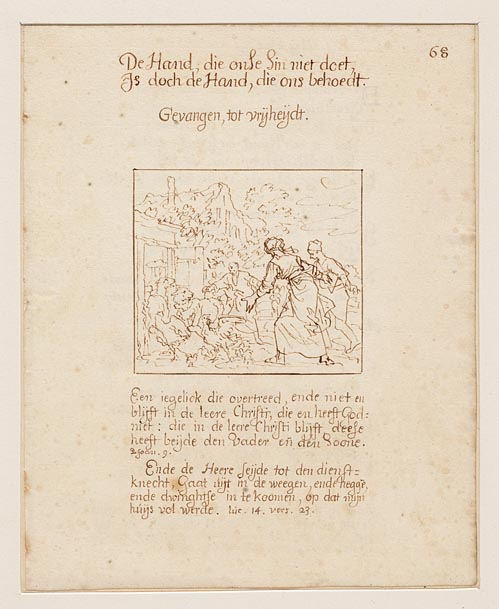 68
De Hand, die onse Sin niet doet,
Is doch de Hand, die ons behoedt.
Gevangen, tot vrijheijdt.
Een iegelick die overtreed, ende niet en
blijft in de leere Christi, die en heeft God
niet: die in de leere Christi blijft deese
heeft beijde den Vader en̄ den Soone.
2 Joan. 9.
Ende de Heere seijde tot den dienst-
knecht, Gaat uijt in de weegen, ende hegge,
ende dwinghtse in te koomen, op dat mijn
huijs vol werde. Luc. 14. vers. 23.